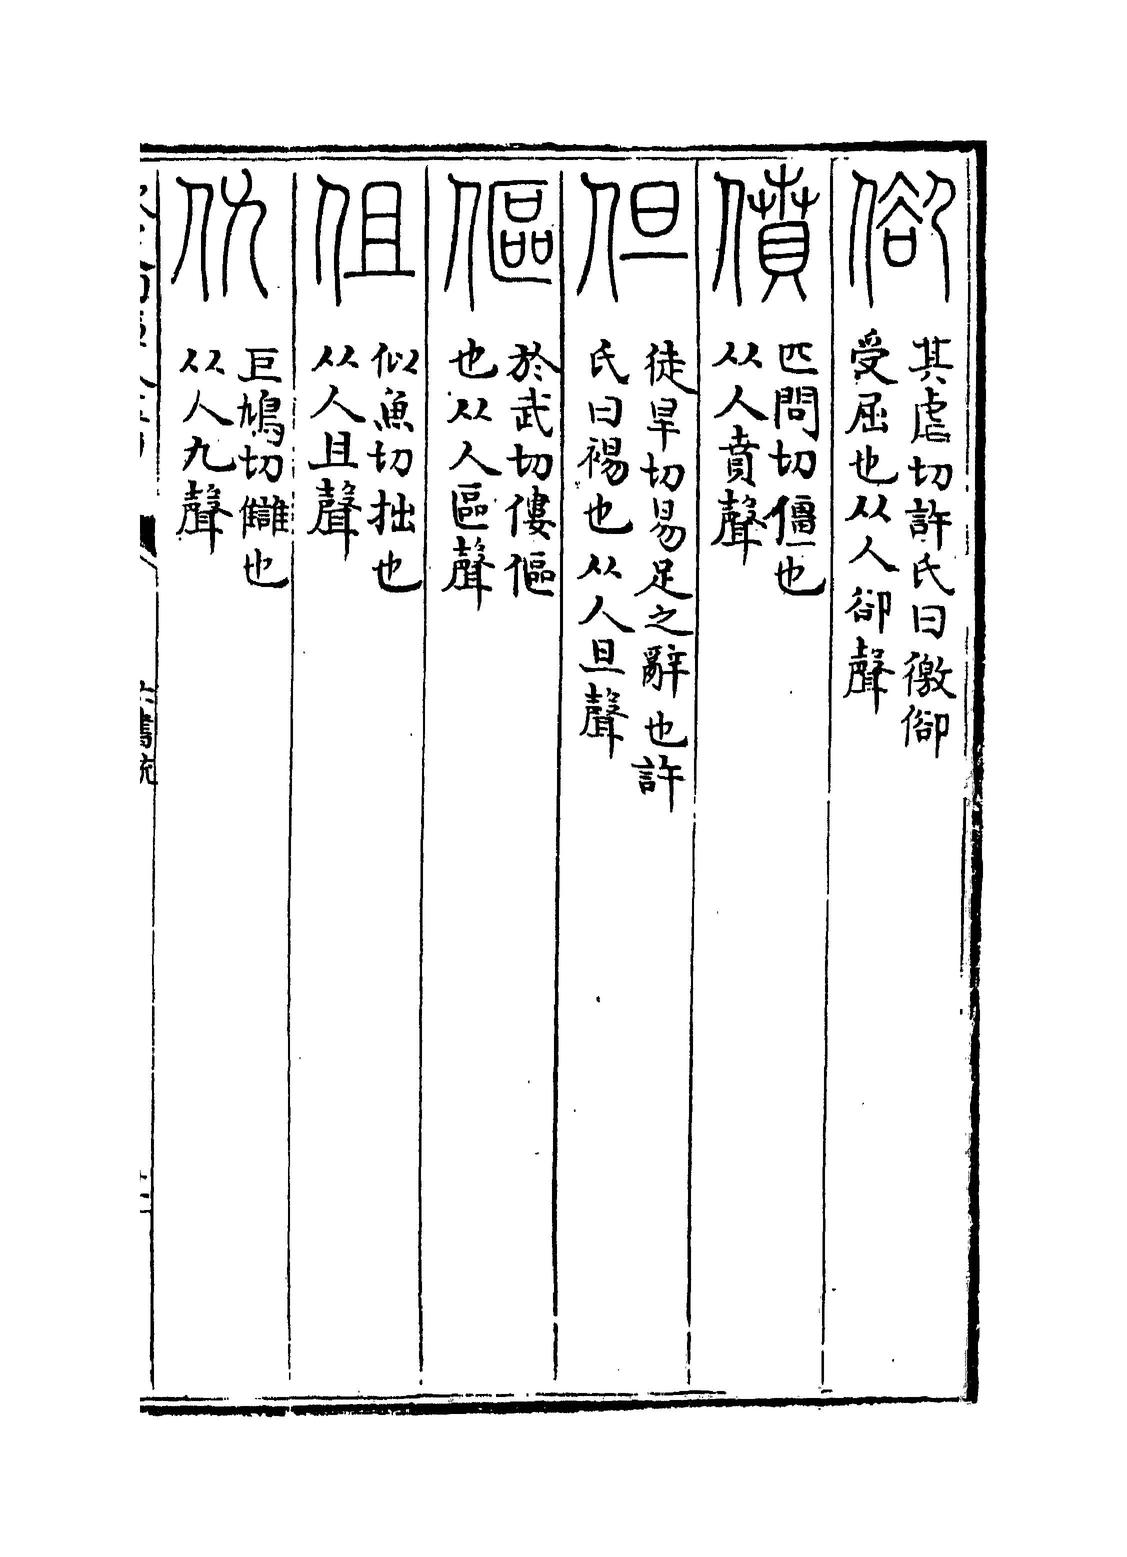 㑢
其虐切許氏曰徼㑢
受屈也从人卻聲
僨
匹問切僵也
从人賁聲
但
徒旱切易足之辭也許
氏曰裼也从人旦聲
傴
於武切僂傴
也从人區聲
伹
似魚切拙也
从人且聲
仇
巨鳩切讎也
从人九聲
六書統